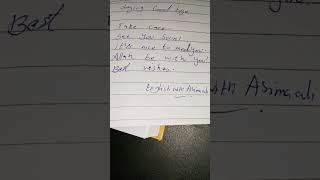 Saying Good bye
Best
Take care
See you soon!
It's nice to meet you.
Allah be with you!
Best wishes.
English with Asima ali